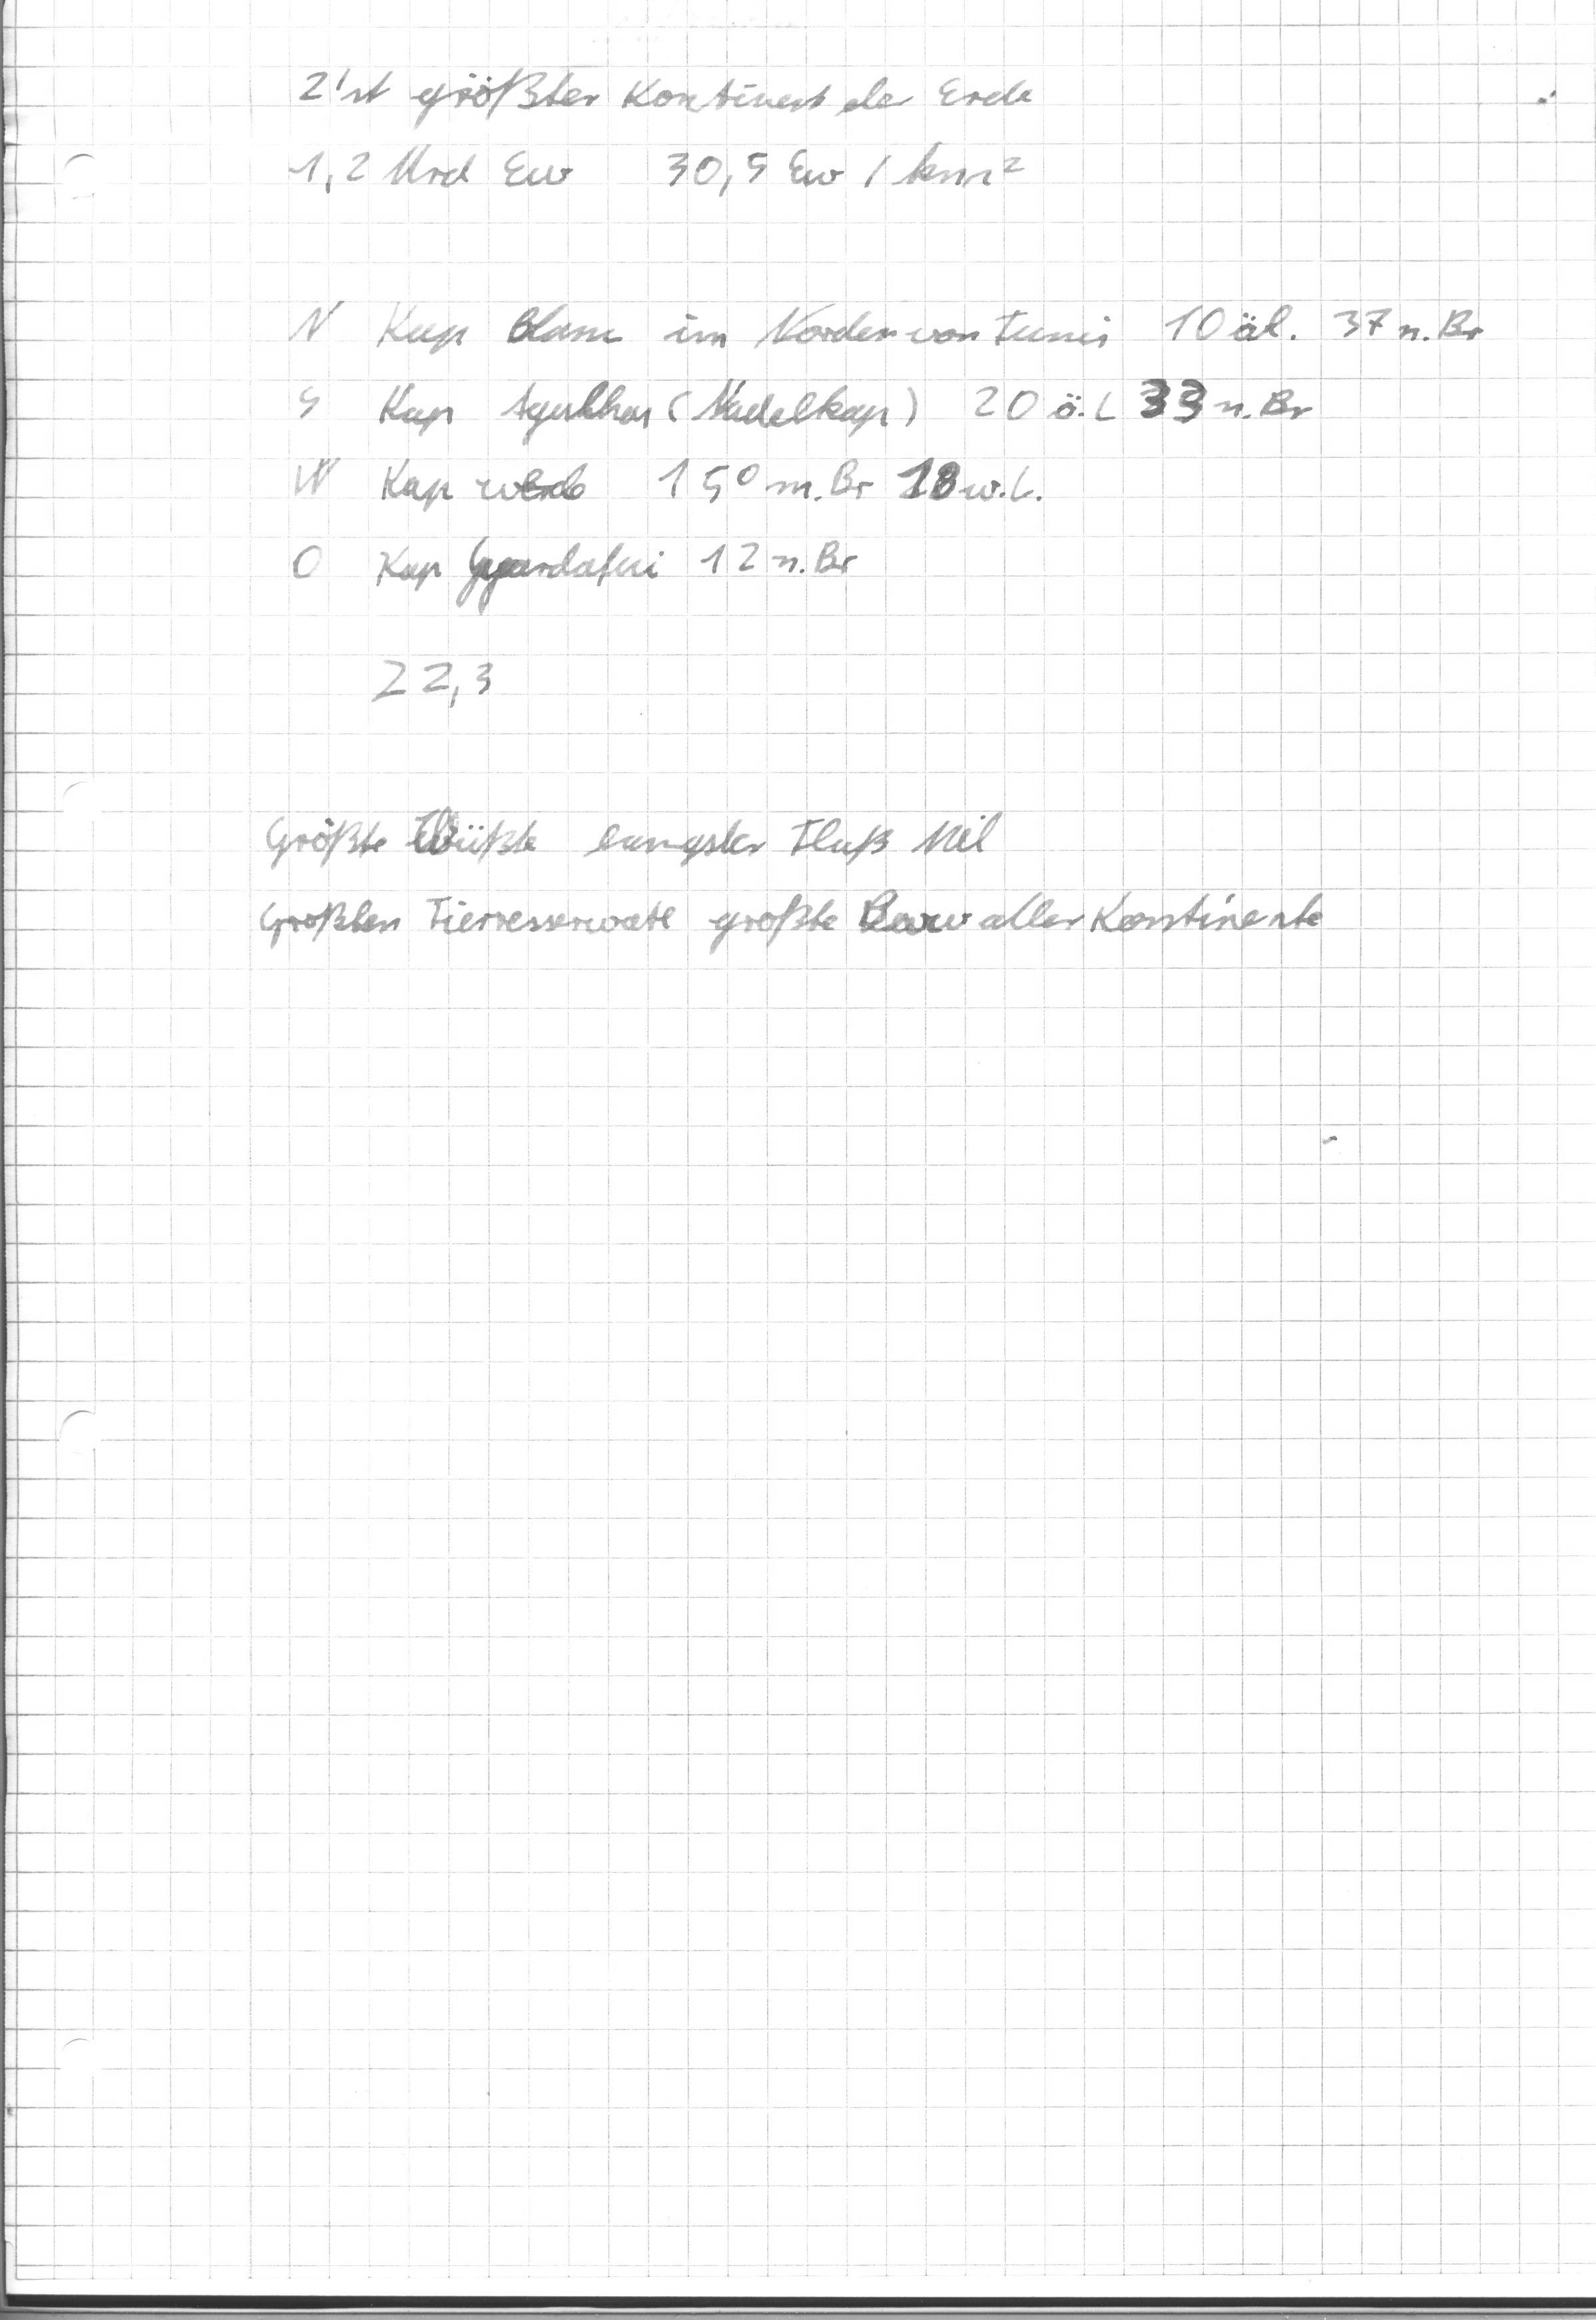 2'st größter Kontinent der Erde
1,2 Mrd Ew 30,5 Ew / km²
N Kap Blanc im Norden von Tunis 10 öl. 37 n. Br
S Kap Agulhas (Nadelkap) 20 ö. L 33 n. Br
W Kap verde 15° n. Br 18 w. L.
O Kap Guardafui 12 n. Br
22,3
Größte Wüßte langster Fluß Nil
Größten Tierreservate großte aller Kontinente